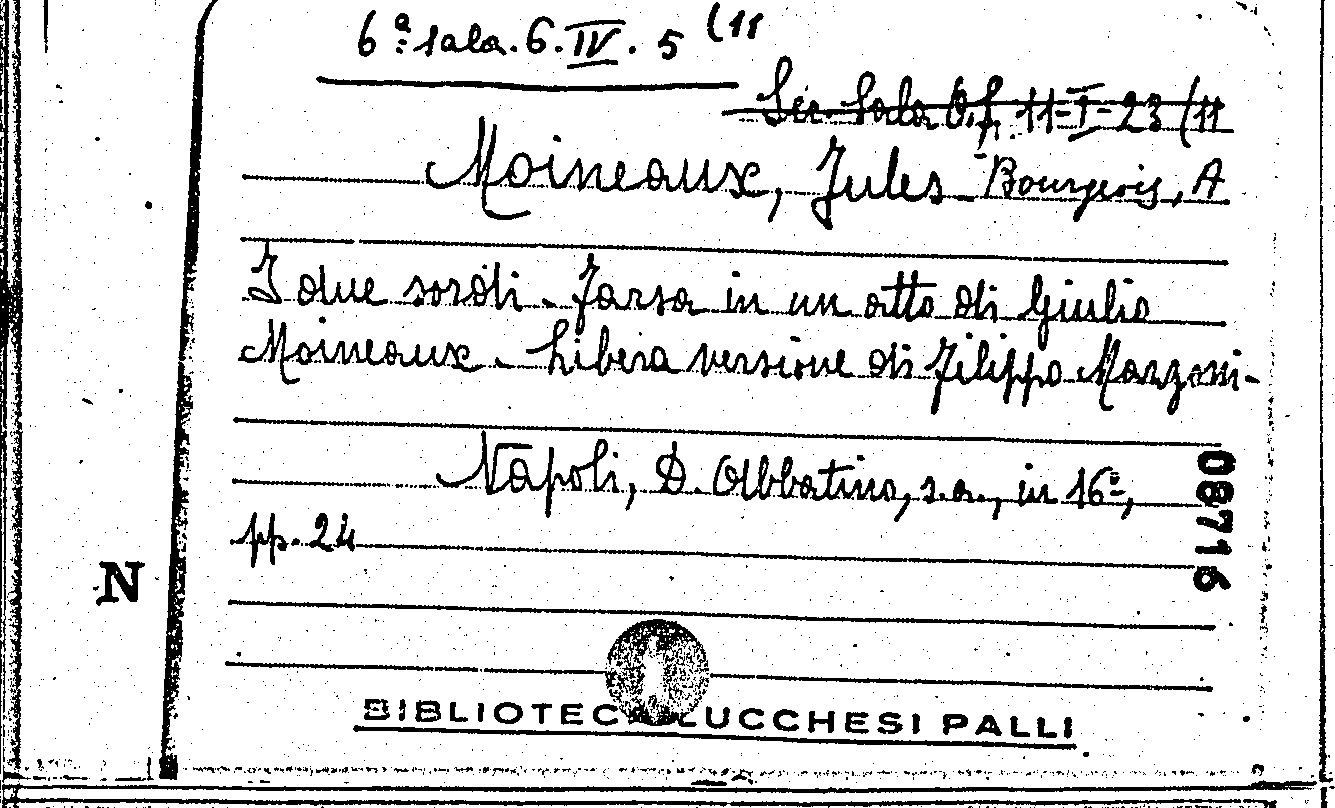 6ª sala. 6. IV. 5 (11
Sir. Sala O.f. 11-I-23 (11
Moineaux, Jules - Bourgeois, A
I due sordi - farsa in un atto di Giulio
Moineaux - Libera versione di Filippo Marzoni -
Napoli, D. Abbatino, s.a., in 16º,
pp. 24
08716
N
BIBLIOTECA LUCCHESI PALLI